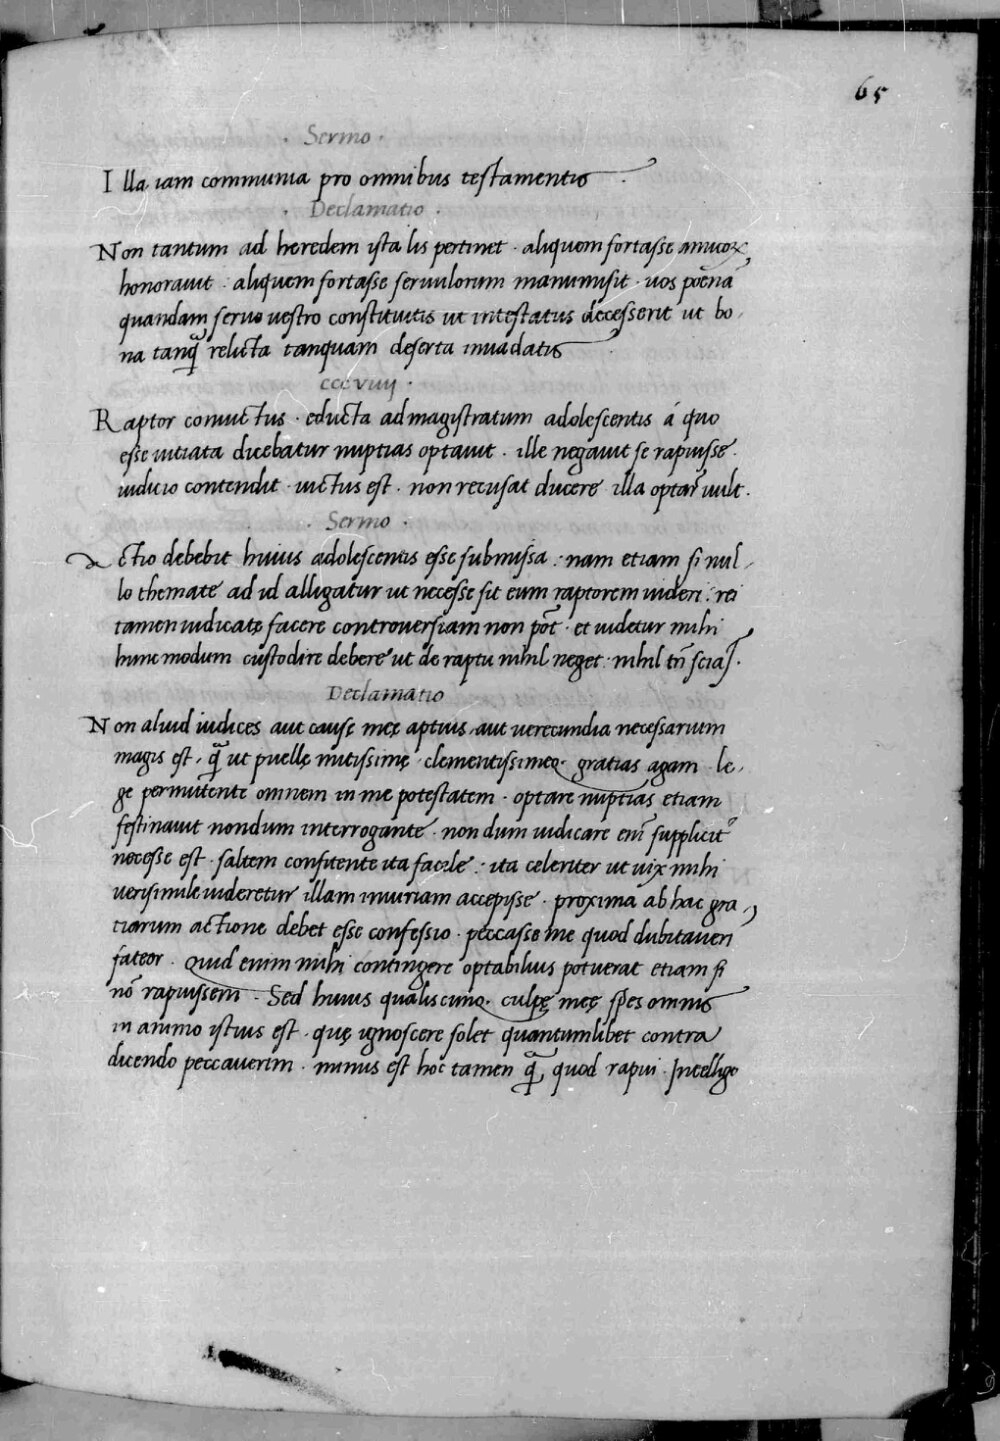 65
· Sermo ·
Illa iam communia pro omnibus testamentis ·
· Declamatio ·
Non tantum ad heredem ista lis pertinet · aliquem fortasse amicoꝝ
honorauit · aliquem fortasse seruulorum manumisit · uos poenā
quandam seruo uestro constituitis ut intestatus decesserit ut bo-
na tanq̃ relicta tanquam deserta inuadatis ·
cccviiij ·
Raptor conuictus · educta ad magistratum adolescentis á quo
esse uitiata dicebatur nuptias optauit · ille negauit se rapuisse ·
iudicio contendit · uictus est · non recusat ducere illa optar̃ uult ·
· Sermo ·
Actio debebit huius adolescentis esse submissa : nam etiam si nul-
lo themate ad id alligatur ut necesse sit eum raptorem uideri : rei
tamen iudicatę facere controuersiam non põt · et uidetur mihi
hunc modum custodire debere ut de raptu nihil neget · nihil tñ sciaſ ·
Declamatio
Non aliud iudices aut causę meę aptius aut uerecundia necessarium
magis est, q̃ ut puellę mitissimę · clementissimęq· gratias agam · le-
ge permittente omnem in me potestatem · optare nuptias etiam
festinauit nondum interrogante · non dum iudicare eni̅ suppliciū
necesse est · saltem confitente ita facile : ita celeriter ut uix mihi
uerisimile uideretur illam iniuriam accepisse · proxima ab hac gra-
tiarum actione debet esse confessio · peccasse me quod dubitaueri
fateor · Quid enim mihi contingere optabilius potuerat etiam si
nõ rapuissem · Sed huius qualiscunq· culpę meę sp̃es omnis
in animo istius est · quę ignoscere solet quantumlibet contra
dicendo peccauerim · minus est hoc tamen q̃, quod rapui · Intelligo